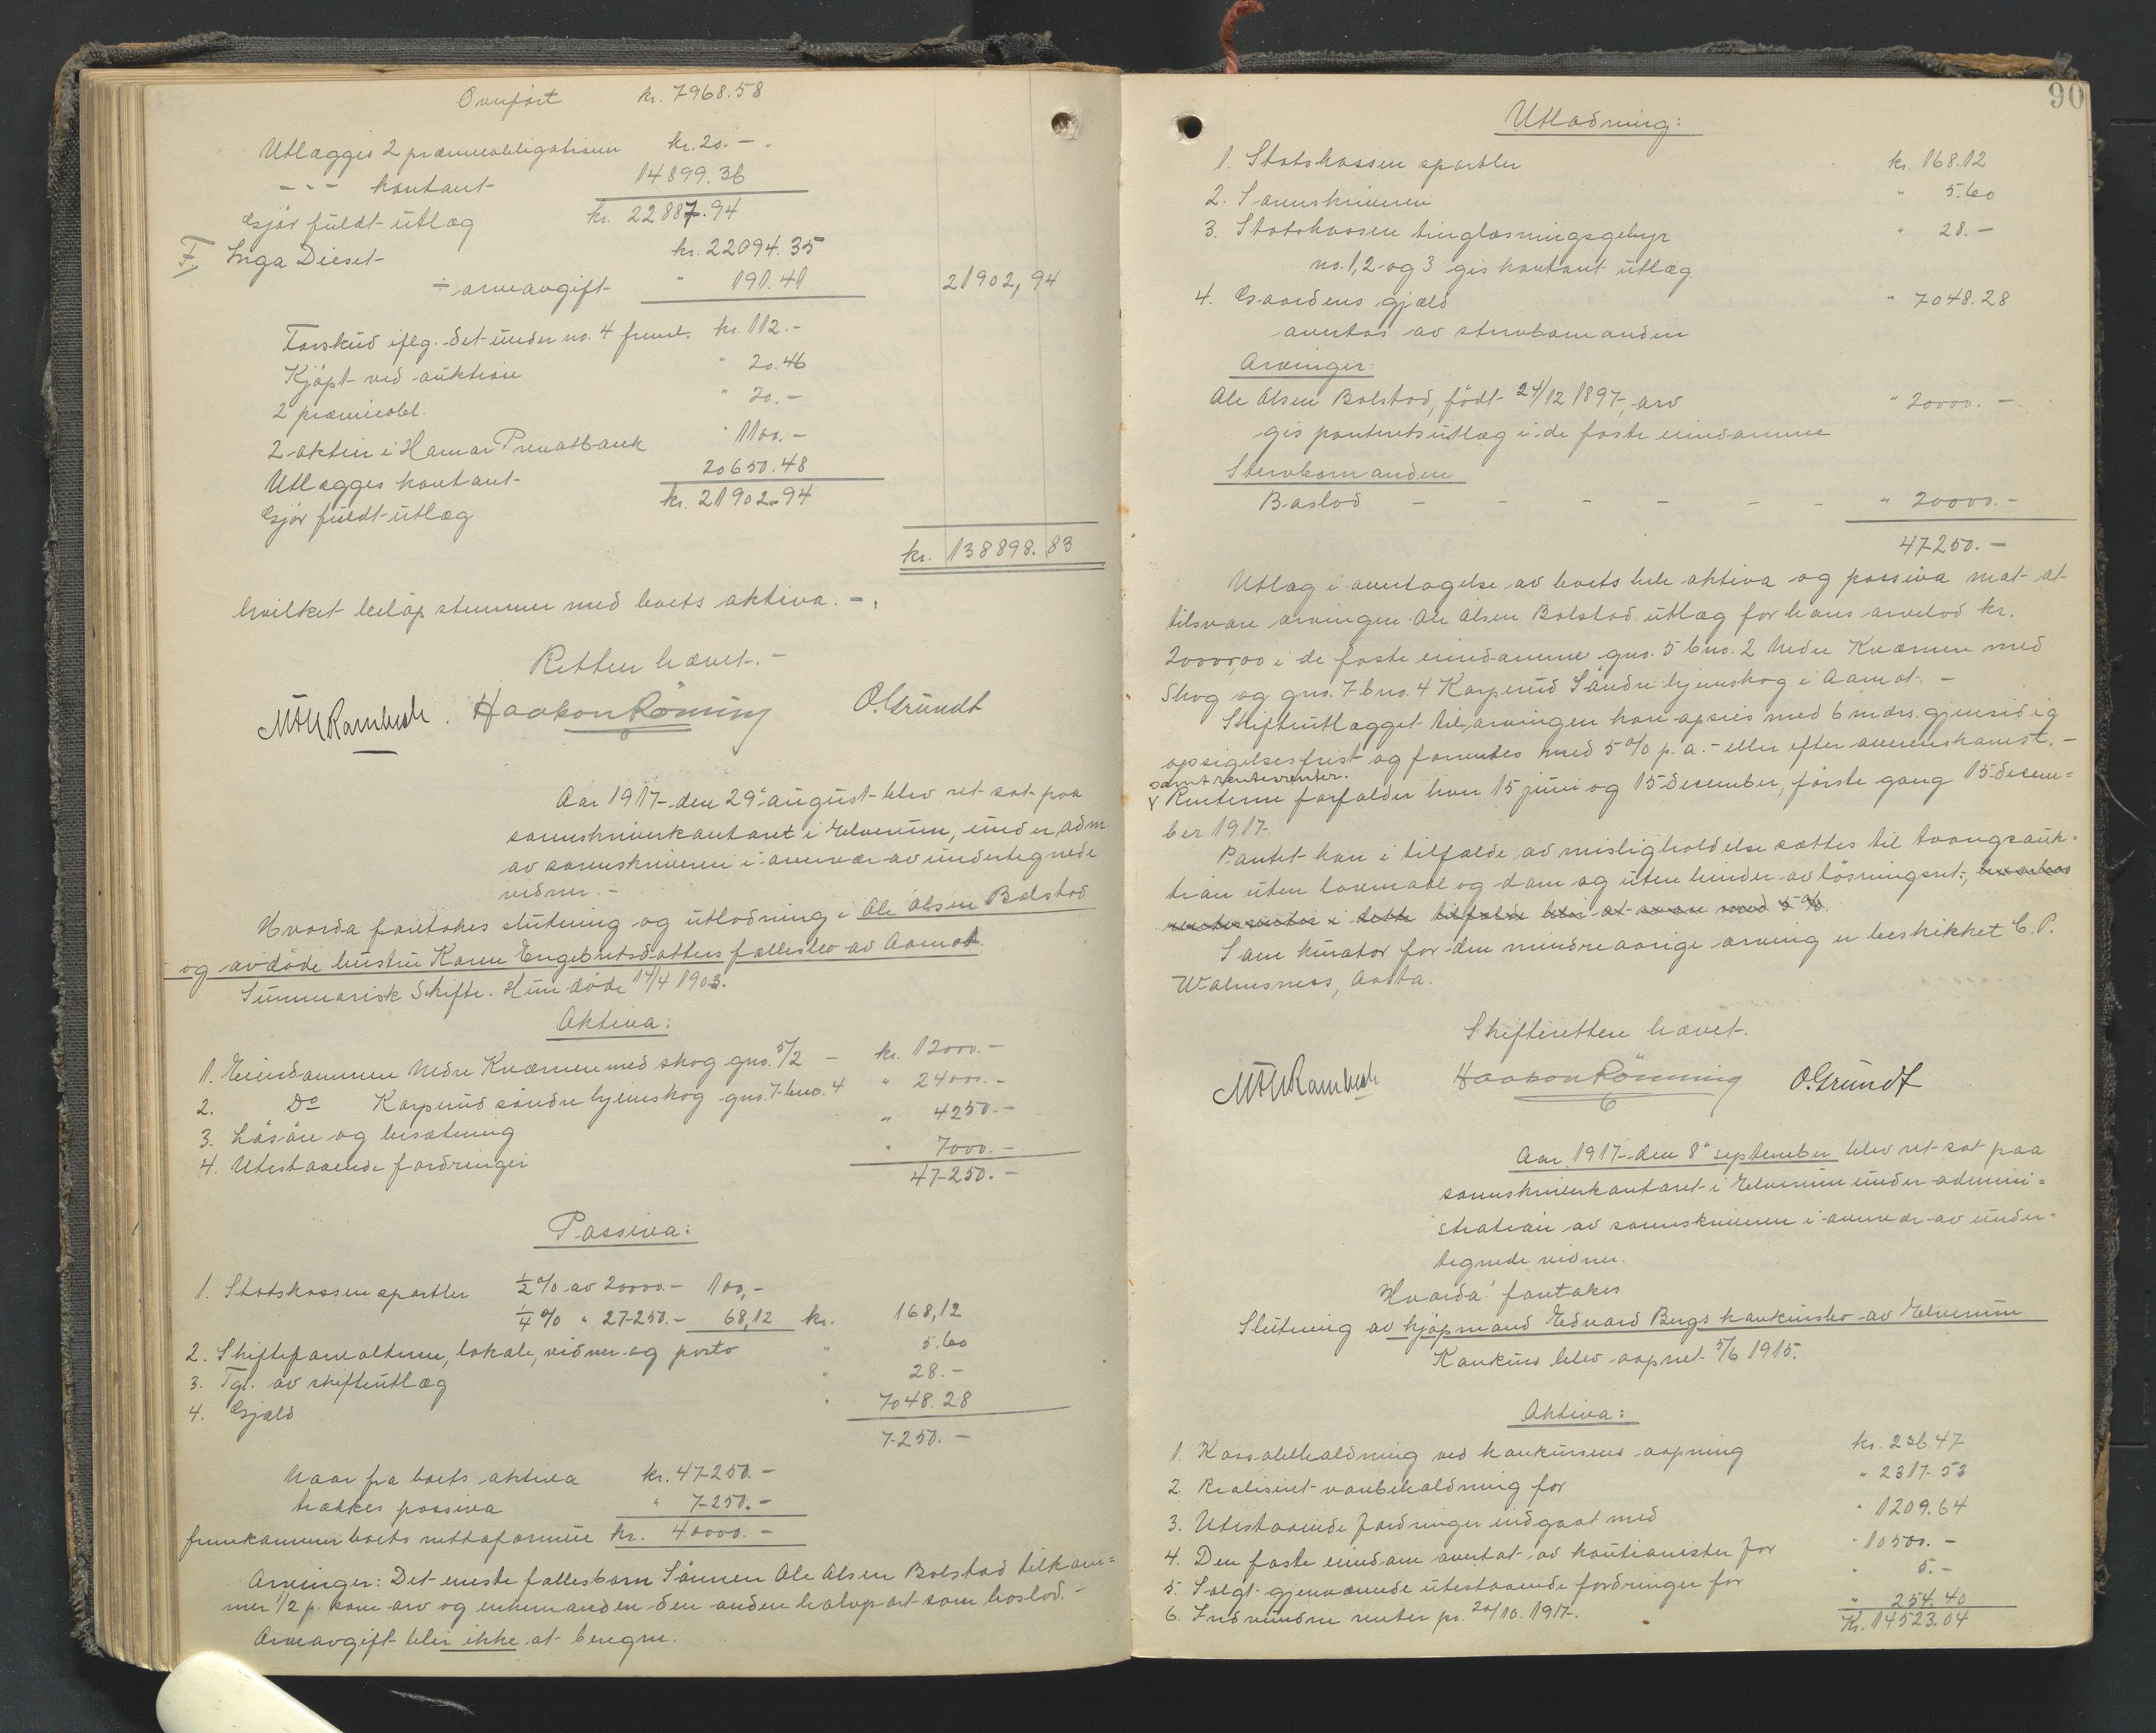 Overført kr. 7968.58
Utlægges 2 præmieobligationer kr. 20.-
-"- kontant 14899.36
Gjør fuldt utlæg kr. 22887.94
F, Inga Dieset kr. 22094.35
÷ arveavgift " 191.41 21902,94
Forskud iflg. det under no. 4 freml. kr. 112.-
Kjøpt ved auktion " 20.46
2 præmieobl. " 20.-
2 aktier i Hamar Privatbank " 1100.-
Utlægges kontant 20650.48
Gjør fuldt utlæg kr. 21902.94
kr. 138898.83
hvilket beløp stemmer med boets aktiva. -
Retten hævet. -
Haakon Rönning O. Grundt
Aar 1917 den 29' august blev ret sat paa
sorenskriverkontoret i Elverum, under adm.
av sorenskriveren i overvær av undertegnede
vidner. -
Hvorda foretokes slutning og utlodning i Ole Olsen Bolstad
og avdöde hustru Karen Engebretsdatters fællesbo av Aamot.
Summarisk Skifte. Hun döde 17/4 1903.
Aktiva:
1. Eiendommen Nedre Kværnen med skog gno. 5/2 - kr. 12000.-
2. Do Korperud söndre hjemskog gno. 7 bno. 4 " 24000.-
3. Lösöre og besætning " 4250.-
4. Utestaaende fordringer " 7000.-
47250.-
Passiva:
1. Statskassen sportler ½ % av 20000.- 100,-
¼ % " 27250.- 68,12 kr. 168,12
2. Skifteforvalteren, lokale, vidner og porto " 5.60
3. Tgl. av skifteutlæg " 28.-
4. Gjæld " 7048.28
7250.-
Naar fra boets aktiva kr. 47250.-
trækkes passiva " 7250.-
fremkommer boets nettoformue kr. 40000.-
Arvinger: Det eneste fellesbarn Sönnen Ole Olsen Bolstad tilkom=
mer 1/2 p. som arv og enkemanden den anden halvpart som boslod. -
Arveavgift blir ikke at beregne.
90
Utlodning:
1. Statskassen sportler kr. 168.12
2. Sorenskriveren " 5.60
3. Statskassen tinglæsningsgebyr " 28.-
no. 1, 2 og 3 gis kontant utlæg
4. Gaardens gjæld " 7048.28
overtas av stervbomanden
Arvinger:
Ole Olsen Bolstad, født 24/12 1897, arv " 20000.-
gis panteretsutlæg i de faste eiendomme
Stervbomanden
Boslod - - - - - - " 20000.-
47250.-
Utlæg i overtagelse av boets hele aktiva og passiva mot at
tilsvare arvingen Ole Olsen Bolstad utlæg for hans arvelod kr.
20000,00 i de faste eiendomme gno. 5 bno. 2 Nedre Kværnen med
Skog og gno. 7 bno. 4 Korperud Söndre hjemskog i Aamot. -
Skifteutlægget til arvingen kan opsies med 6 mdrs. gjensidig
opsigelsesfrist og forrentes med 5 % p. a. - eller efter overenskomst. -
samt renters renter.
Renterne forfalder hver 15 juni og 15 december, förste gang 15 decem=
ber 1917.
Pantet kan i tilfælde av misligholdelse sættes til tvangsauk=
tion uten lovmaal og dom og uten hinder av lösningsret,
renters renter i dette tilfælde blir at svare med 5 %.
Som kurator for den mindreaarige arving er beskikket C. P.
Walmsness, Aasta.
Skifteretten hævet.
Haakon Rönning O. Grundt
Aar 1917 den 8' september blev ret sat paa
sorenskriverkontoret i Elverum under admini=
stration av sorenskriveren i overvær av under=
tegnede vidner.
Hvorda' foretokes
Slutning av kjøpmand Edvard Bergs konkursbo av Elverum
Konkurs blev aapnet 5/6 1915.
Aktiva:
1. Kassabeholdning ved konkursens aapning kr. 236.47
2. Realiseret varebeholdning for " 2317.53
3. Utestaaende fordringer indgaat med " 1209.64
4. Den faste eiendom overtat av kautionister for " 10500.-
5. Solgt gjenværende utestaaende fordringer for " 5.-
6. Indvundne renter pr. 20/10. 1917. " 254.40
Kr. 14523.04